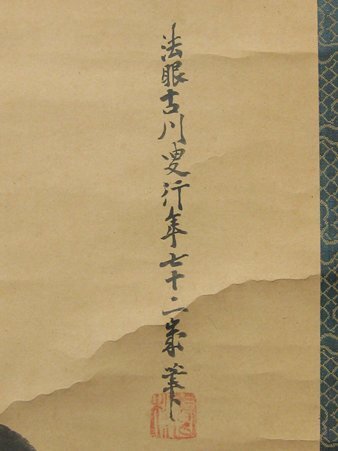 法眼古川叟行年七十二歳筆